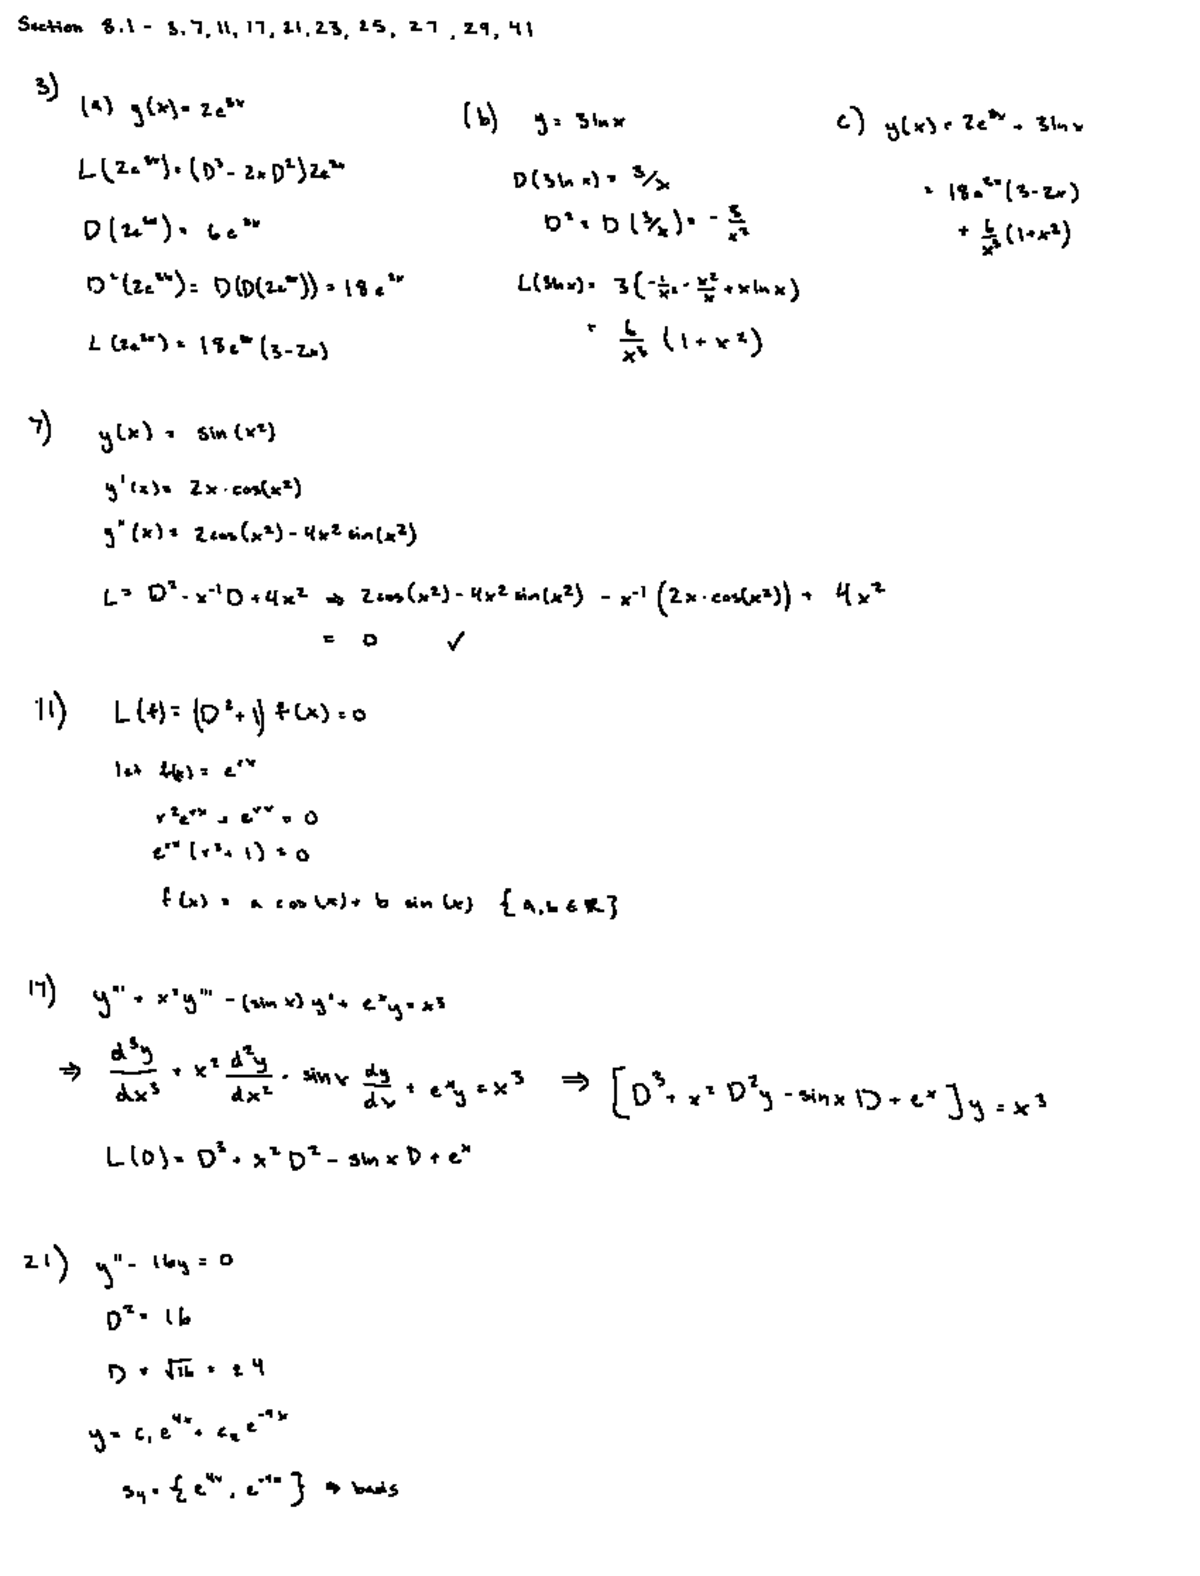 Section 8.1 - 3, 7, 11, 17, 21, 23, 25, 27, 29, 41
3)
(a) y(x) = 2e³ˣ
L(2e³ˣ) = (D³ - 2xD²)2e³ˣ
D(2e³ˣ) = 6e³ˣ
D²(2e³ˣ) = D(D(2e³ˣ)) = 18e³ˣ
L(2e³ˣ) = 18e³ˣ(3-2x)
(b) y = 3lnx
D(3ln x) = 3/x
D² = D(3/x) = -3/x²
L(3lnx) = 3(-1/x² - x²/x + xlnx)
= 6/x³ (1 + x²)
c) y(x) = 2e³ˣ + 3lnx
= 18e³ˣ(3-2x)
+ 6/x³ (1+x²)
7) y(x) = sin(x²)
y'(x) = 2x·cos(x²)
y"(x) = 2cos(x²) - 4x² sin(x²)
L = D² - x⁻¹D + 4x² ⇒ 2cos(x²) - 4x² sin(x²) - x⁻¹(2x·cos(x²)) + 4x²
= 0 ✓
11) L(f) = (D² + 1) f(x) = 0
let f(x) = eʳˣ
r²eʳˣ + eʳˣ = 0
eʳˣ(r² + 1) = 0
f(x) = a cos(x) + b sin(x) {a,b ∈ R}
17) y''' + x²y''' - (sin x) y' + eˣy = x³
⇒ d³y/dx³ + x² d²y/dx² - sinx dy/dx + eˣy = x³ ⇒ [D³ + x² D²y - sinx D + eˣ]y = x³
L(D) = D³ + x²D² - sin x D + eˣ
21) y" - 16y = 0
D² = 16
D = √16 = ±4
y = c₁e⁴ˣ + c₂e⁻⁴ˣ
Sy = {e⁴ˣ, e⁻⁴ˣ} ⇒ basis